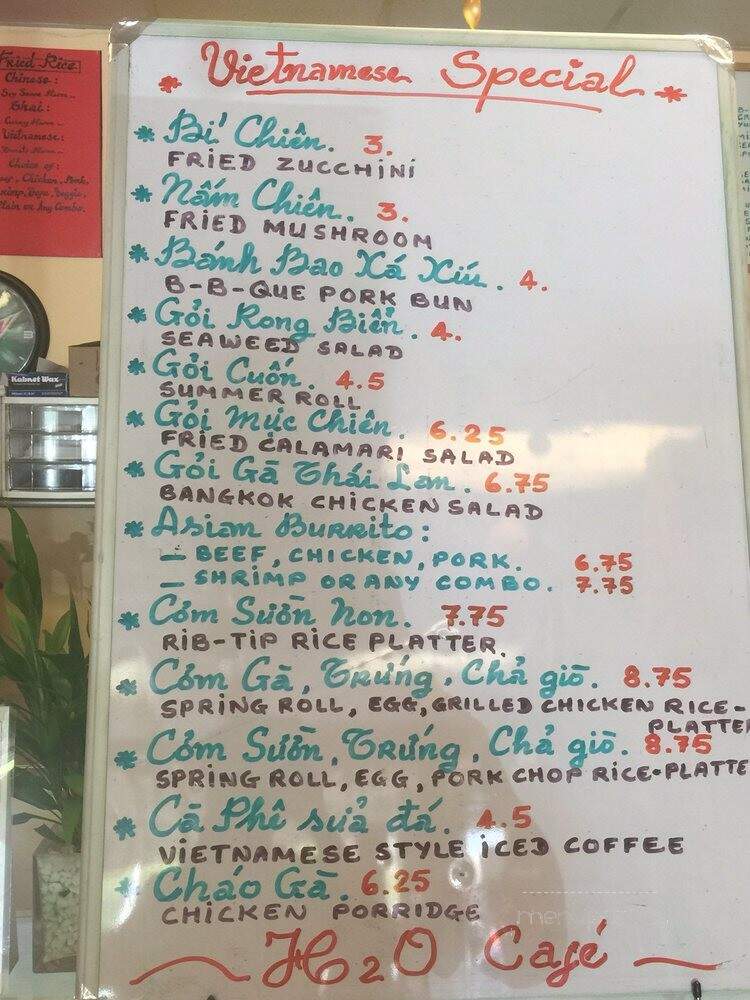 Vietnamese Special
Bí Chiên. 3.
FRIED ZUCCHINI
Nấm Chiên. 3.
FRIED MUSHROOM
Bánh Bao Xá Xíu. 4.
B-B-QUE PORK BUN
Gỏi Rong Biển. 4.
SEAWEED SALAD
Gỏi Cuốn. 4.5
SUMMER ROLL
Gỏi Mực Chiên. 6.25
FRIED CALAMARI SALAD
Gỏi Gà Thái Lan. 6.75
BANGKOK CHICKEN SALAD
Asian Burrito:
- BEEF, CHICKEN, PORK. 6.75
- SHRIMP OR ANY COMBO. 7.75
Cơm Sườn Non. 7.75
RIB-TIP RICE PLATTER.
Cơm Gà, Trứng, Chả giò. 8.75
SPRING ROLL, EGG, GRILLED CHICKEN RICE-
PLATTER
Cơm Sườn, Trứng, Chả giò. 8.75
SPRING ROLL, EGG, PORK CHOP RICE-PLATTE
Cà Phê sửa đá. 4.5
VIETNAMESE STYLE ICED COFFEE
Cháo Gà. 6.25
CHICKEN PORRIDGE
H2O Café
Fried Rice
Chinese:
Thai:
Vietnamese:
Choice of:
Plain or Any Combo.
Kabnet Wax